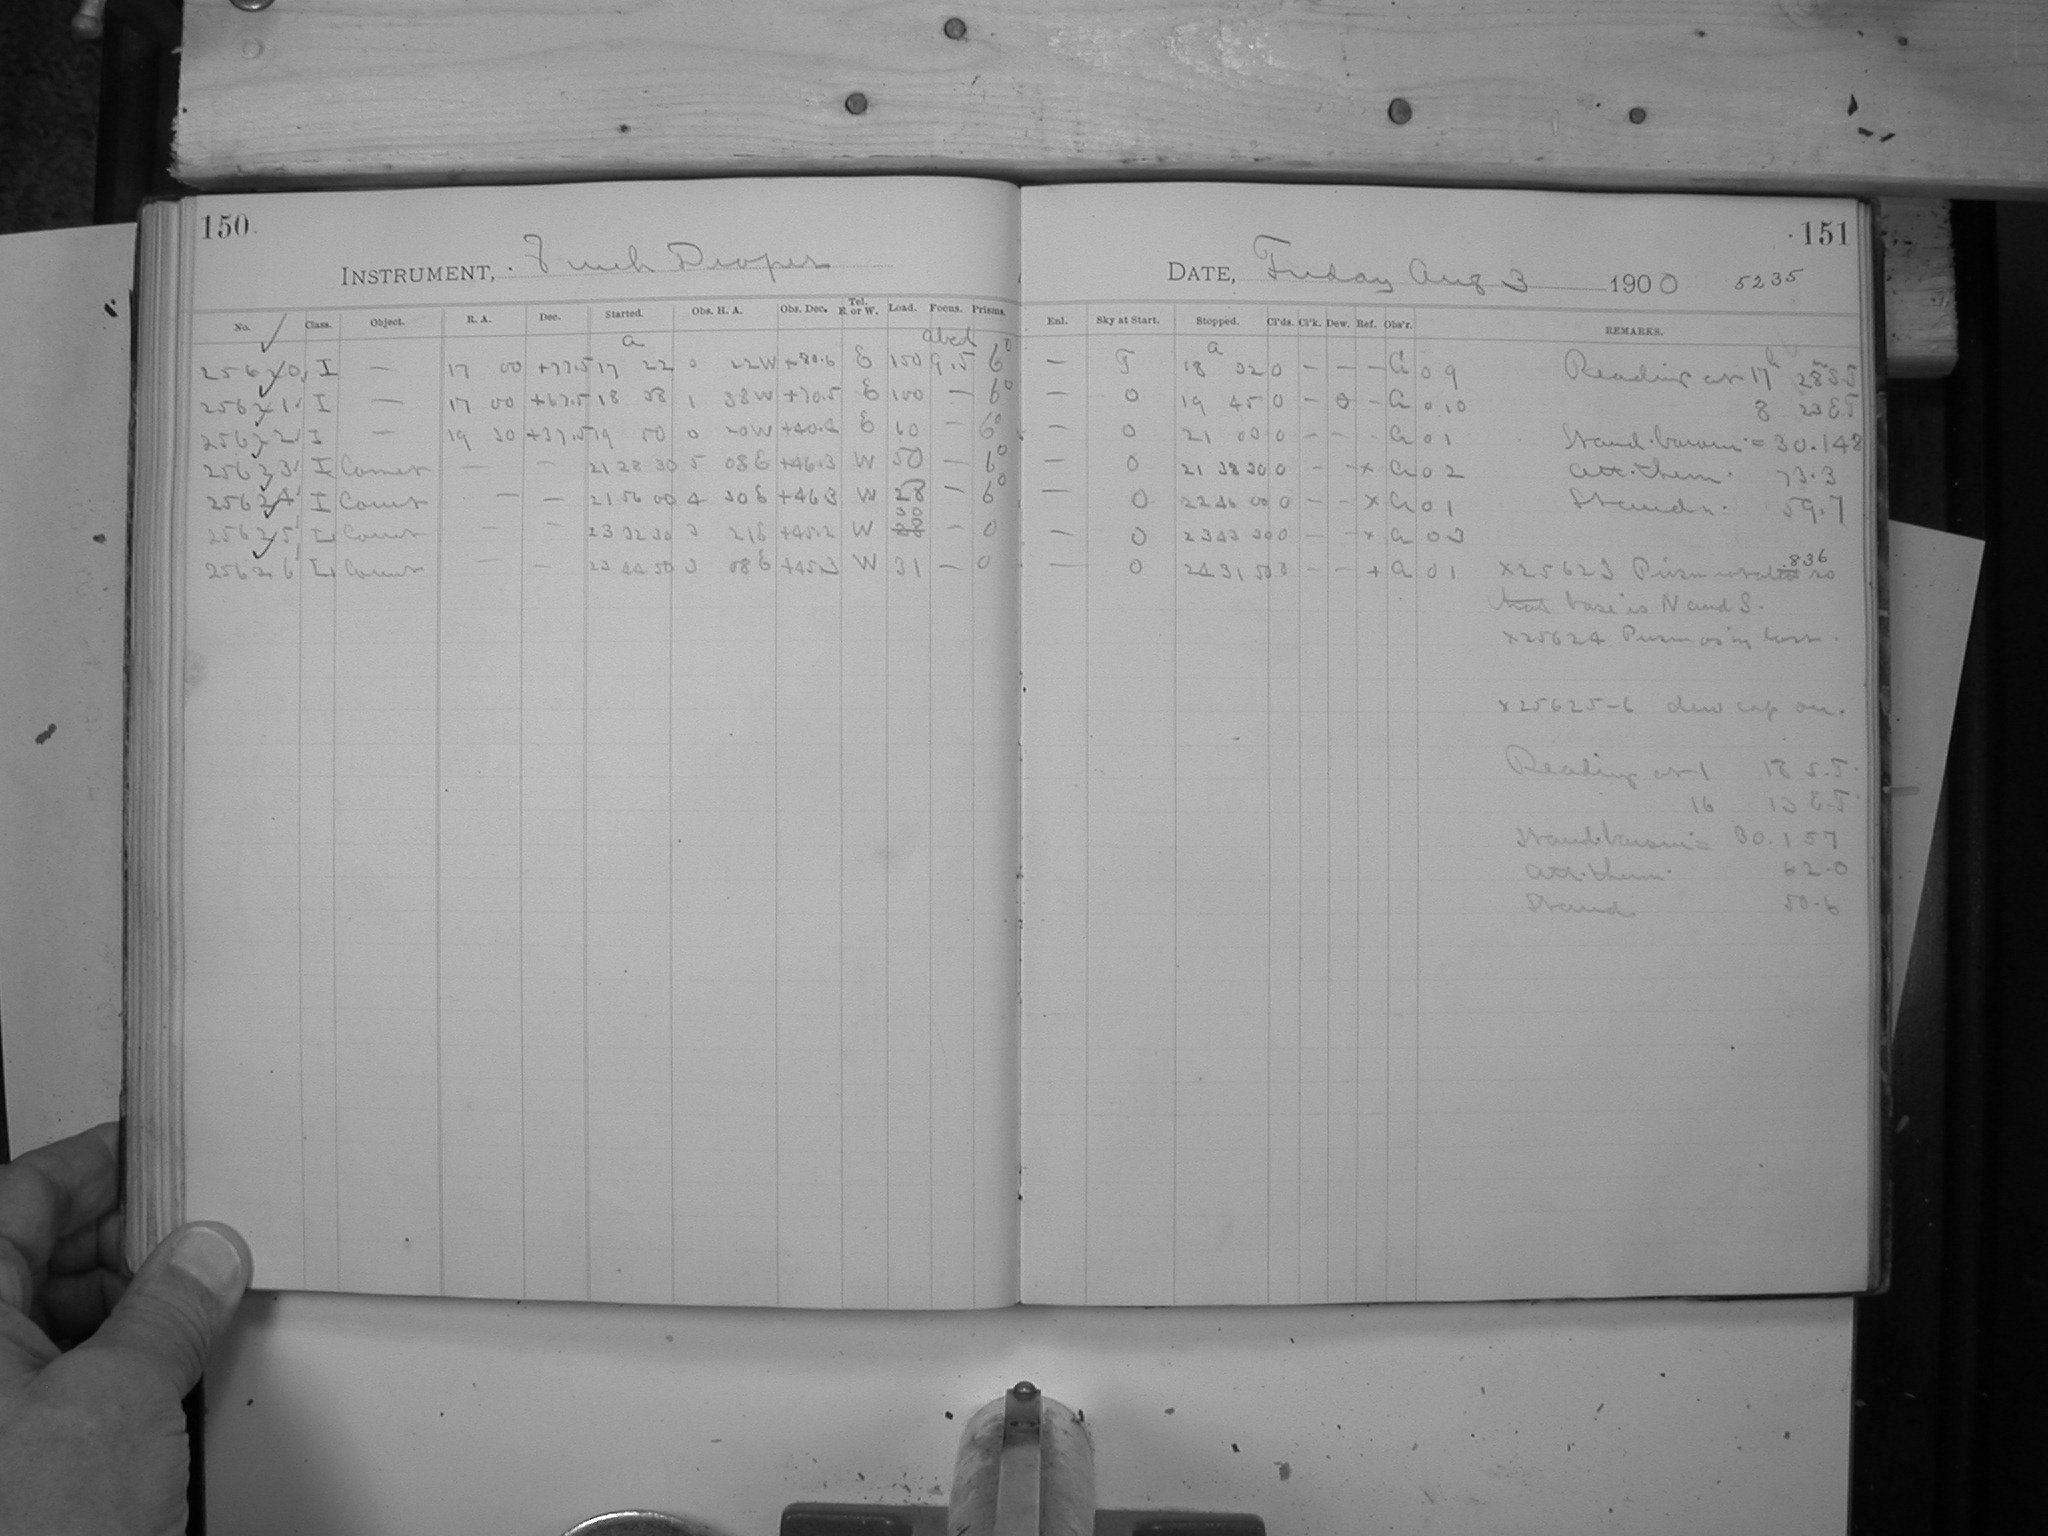 150
INSTRUMENT, 8 inch Draper
No. Class. Object. R. A. Dec. Started. Obs. H. A. Obs. Dec. Tel. E. or W. Load. Focus. Prisms.
a abcd
25620 I — 17 00 +77.5 17 22 0 22W +80.6 E 150 9.5 6°
25621 I — 17 00 +67.5 18 38 1 38W +70.5 E 100 — 6°
25622 I — 19 30 +37.5 19 50 0 20W +40.2 E 60 — 6°
25623 I Comet — — 21 28 30 5 08E +46.3 W 50 — 6°
25624 I Comet — — 21 56 00 4 30E +46.3 W 28 — 6°
30
25625 I Comet — — 23 32 30 3 21E +45.2 W 28 — 0
25626 I Comet — — 23 44 50 3 08E +45.3 W 31 — 0
151
DATE, Friday Aug 3 1900 5235
Enl. Sky at Start. Stopped. Cl'ds. Cl'k. Dew. Ref. Obs'r. REMARKS.
a
— T 18 32 0 — — — a 0 9 Reading at 17h 28m S.T
— 0 19 45 0 — 0 — a 0 10 8 23 E.T
— 0 21 00 0 — — a 0 1 Stand. barom. = 30.148
— 0 21 38 30 0 — — x a 0 2 Att. therm. 73.3
— 0 22 46 00 0 — — x a 0 1 Stand. 59.7
— 0 23 43 30 0 — — x a 0 3
— 0 24 31 50 0 — — + a 0 1 x25623 Prism rotated .836 so
that base is N and S.
x25624 Prism as in last.
x25625-6 dew cap on.
Reading at 1 18 S.T.
16 13 E.T.
Stand. barom = 30.157
Att. therm. 62.0
Stand. 50.6